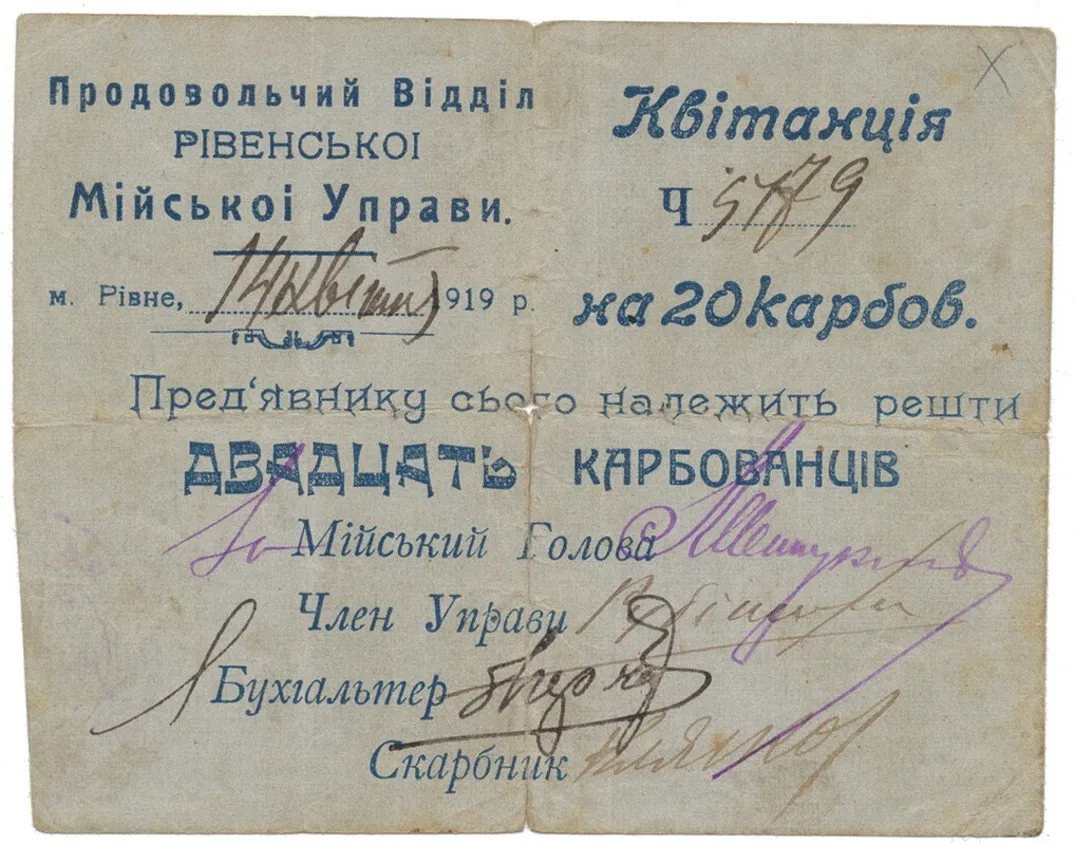 Продовольчий Відділ
РІВЕНСЬКОІ
Мійськоі Управи.
м. Рівне, 14 квітня 1919 р.
Квітанція
Ч 5179
на 20 карбов.
Пред'явнику сього належить решти
ДВАДЦАТЬ КАРБОВАНЦІВ
Мійський Голова
Член Управи
Бухгальтер
Скарбник